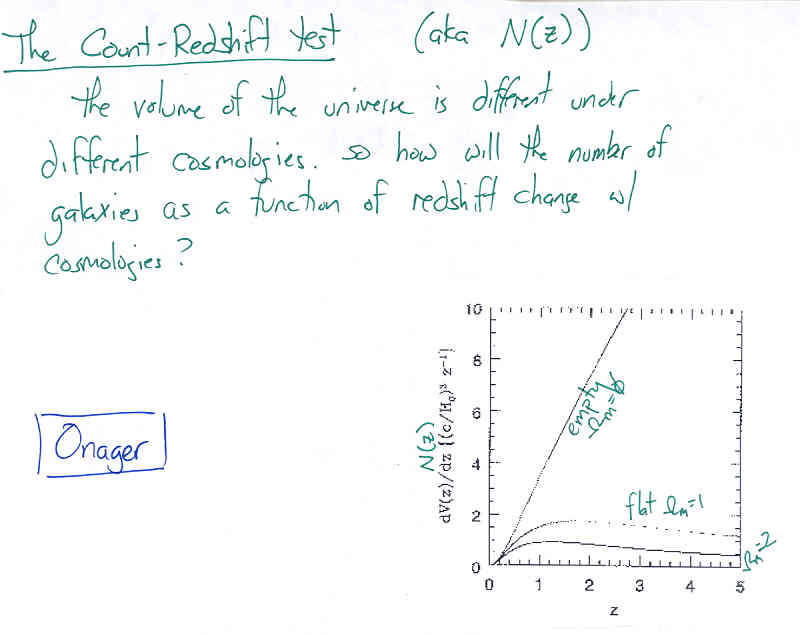 The Count-Redshift test (aka N(z))
the volume of the universe is different under
different cosmologies. so how will the number of
galaxies as a function of redshift change w/
cosmologies?
Onager
N(z)
dV(z)/dz [(c/H₀)³ z⁻¹]
10
8
6
4
2
0
empty
Ωm=0
flat Ωm=1
Ωm=2
0 1 2 3 4 5
z